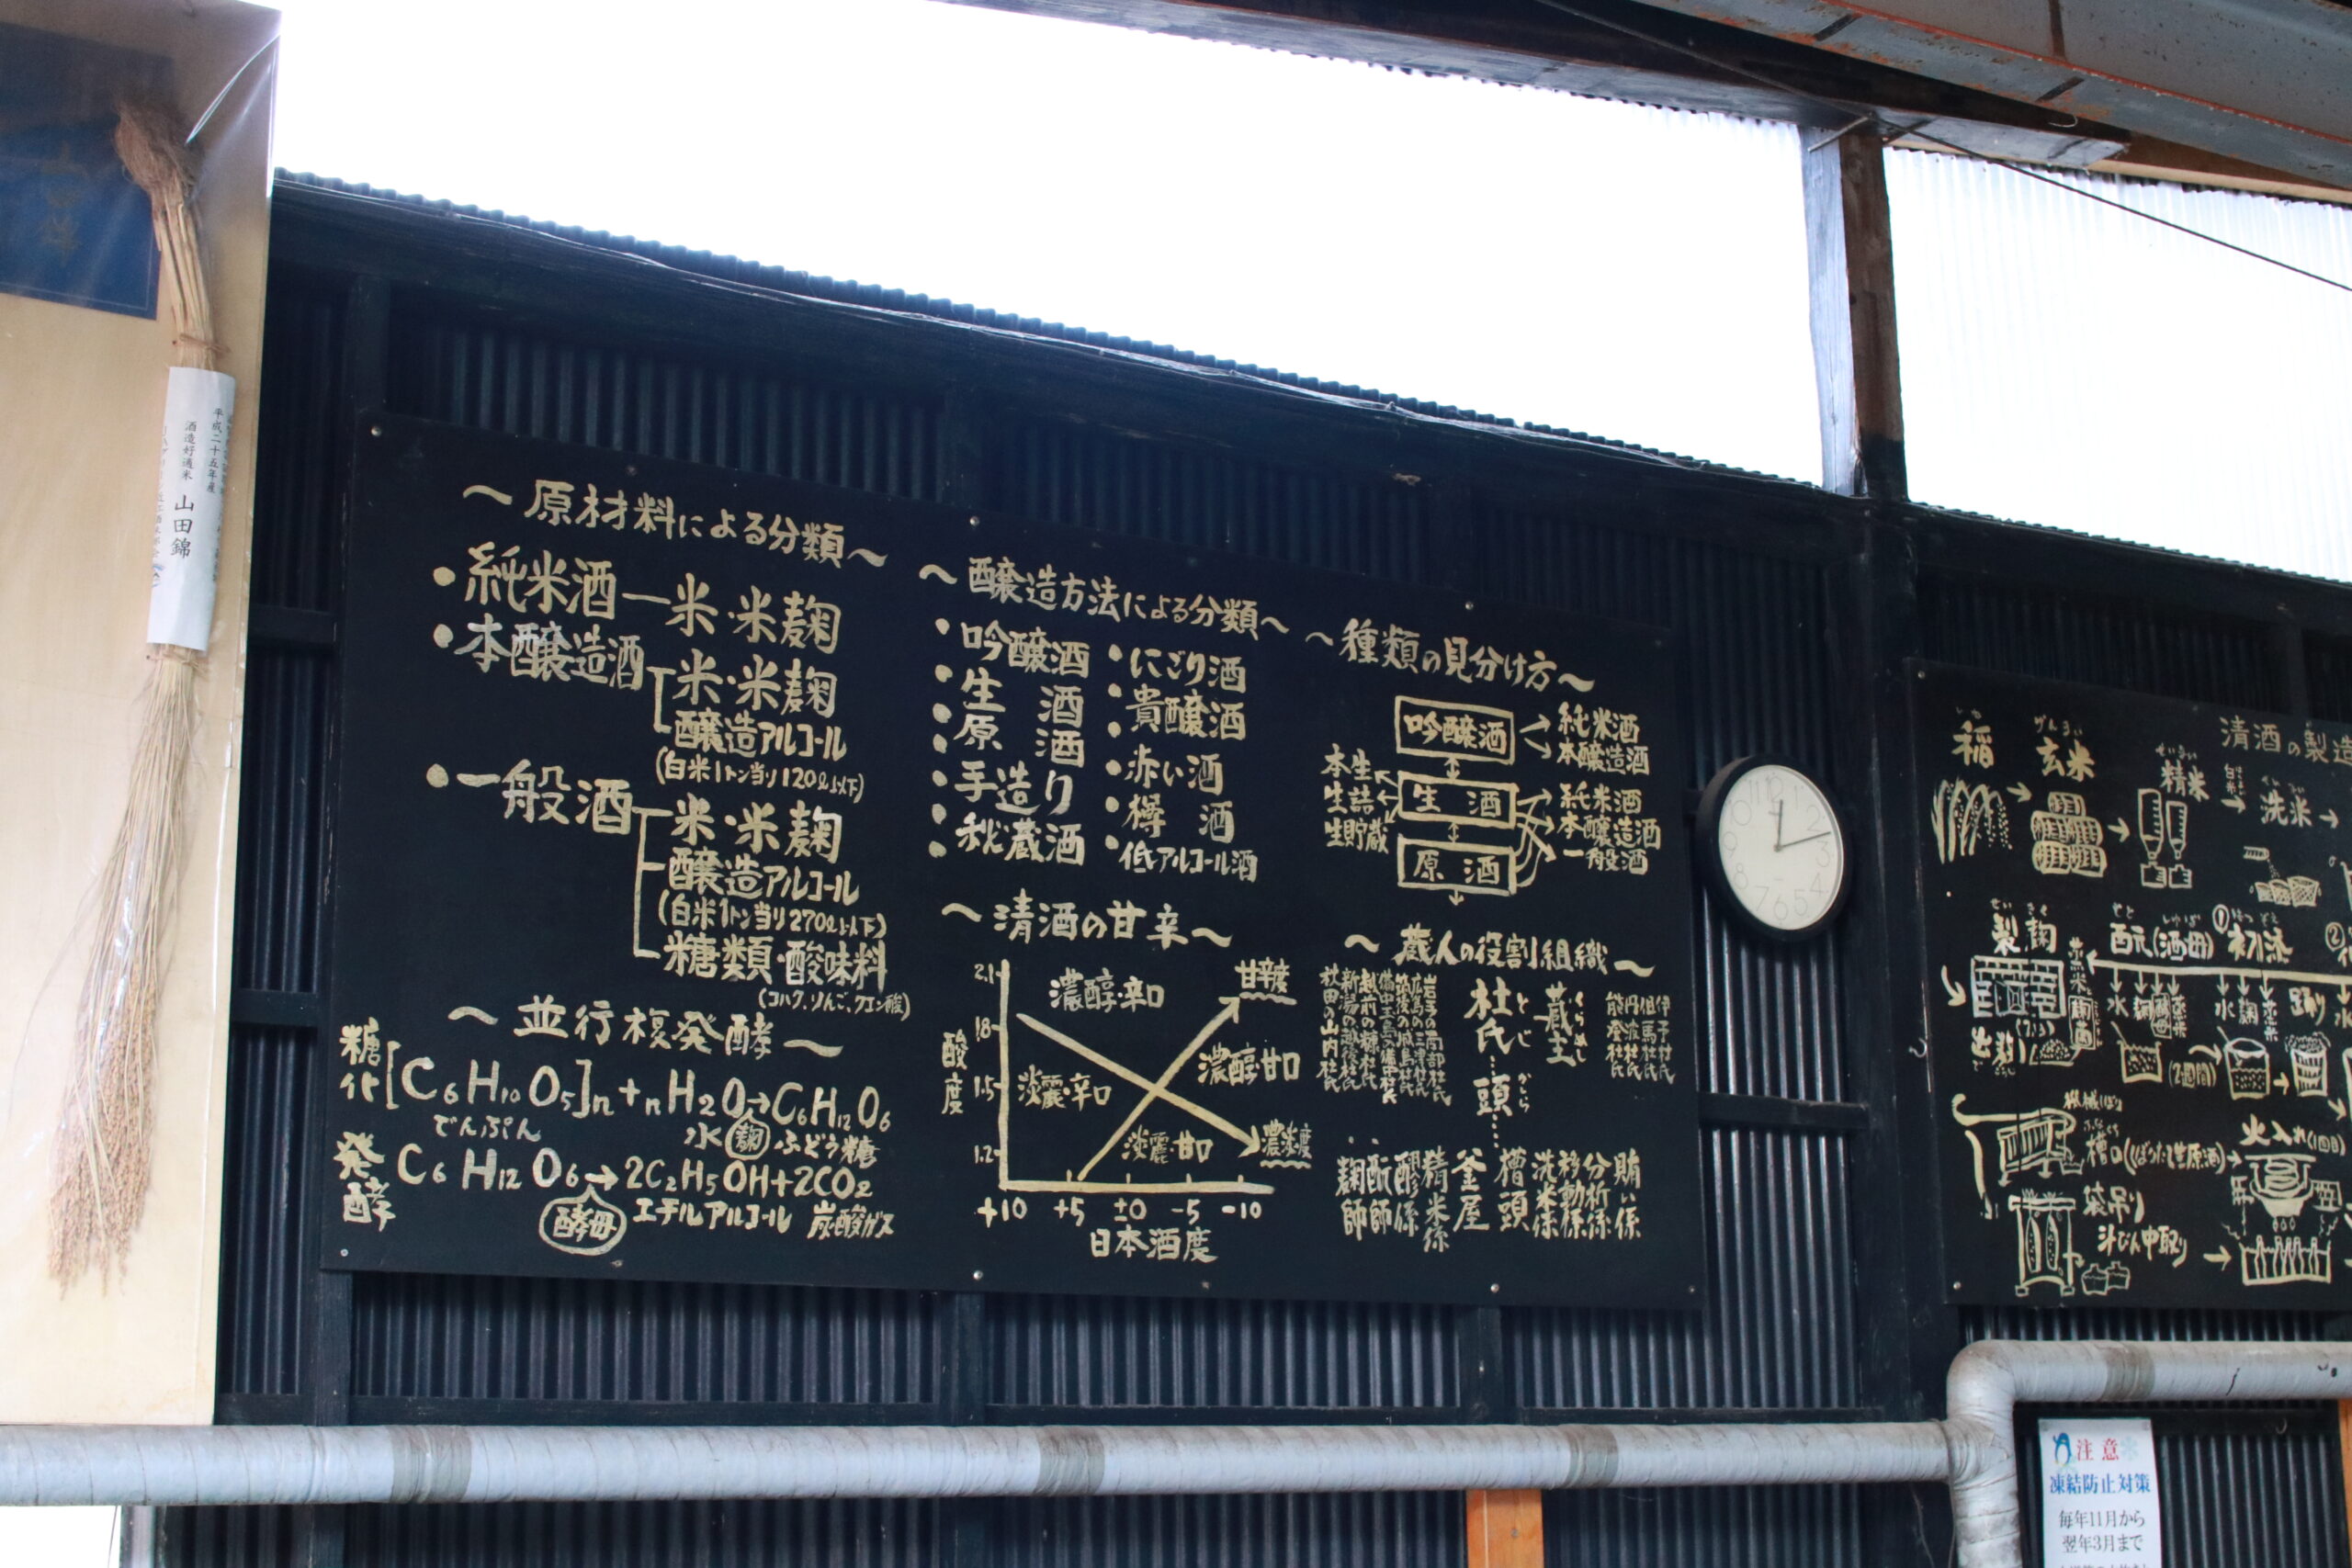 平成二十五年産
酒造好適米 山田錦
〜原材料による分類〜
・純米酒ー米・米麹
・本醸造酒 米・米麹
醸造アルコール
(白米1トン当り120ℓ以下)
・一般酒 米・米麹
醸造アルコール
(白米1トン当り270ℓ以下)
糖類・酸味料
(コハク、りんご、クエン酸)
〜並行複発酵〜
糖化 [C6H10O5]n+nH2O→C6H12O6
でんぷん 水 麹 ぶどう糖
発酵 C6H12O6→2C2H5OH+2CO2
酵母 エチルアルコール 炭酸ガス
〜醸造方法による分類〜
・吟醸酒
・生酒
・原酒
・手造り
・秘蔵酒
・にごり酒
・貴醸酒
・赤い酒
・樽酒
・低アルコール酒
〜清酒の甘辛〜
2.1
1.8
1.5
1.2
酸度
濃醇・辛口
甘辛度
淡麗・辛口
濃醇・甘口
淡麗・甘口
濃淡度
+10 +5 ±0 -5 -10
日本酒度
〜種類の見分け方〜
吟醸酒
純米酒
本醸造酒
本生
生詰
生貯蔵
生酒
純米酒
本醸造酒
一般酒
原酒
〜蔵人の役割組織〜
蔵主
くらぬし
杜氏
とじ
頭
かしら
伊予杜氏
但馬杜氏
丹波杜氏
能登杜氏
岩手の南部杜氏
広島の三津杜氏
越前の糠杜氏
秋田の山内杜氏
賄い係
分析係
移動係
洗米係
槽頭
釜屋
精米係
醪係
酛師
麹師
清酒の製造
稲
玄米
げんまい
精米
せいまい
白米
洗米
製麹
せいきく
出麹
蒸米
麹
酛(酒母)
水 麹 酵母 蒸米
(2週間)
①初添
水 麹 蒸米
踊り
②
機械しぼり
槽口(しぼりたて生原酒)
火入れ(1回目)
袋吊り
斗びん中取り
注意
凍結防止対策
毎年11月から
翌年3月まで